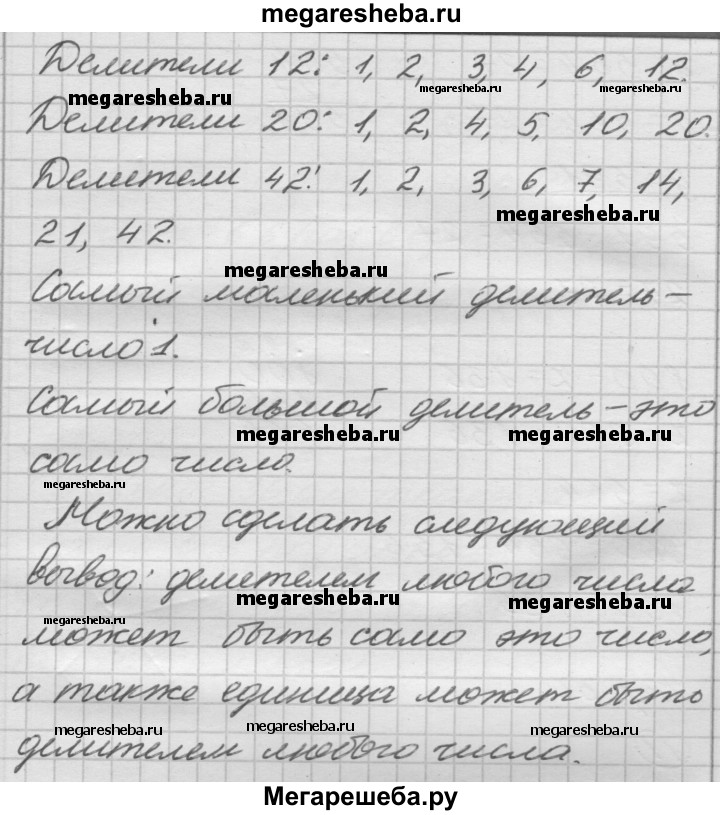 megaresheba.ru
Делители 12: 1, 2, 3, 4, 6, 12.
megaresheba.ru megaresheba.ru megaresheba.ru
Делители 20: 1, 2, 4, 5, 10, 20.
Делители 42: 1, 2, 3, 6, 7, 14,
megaresheba.ru
21, 42.
megaresheba.ru
Самый маленький делитель –
число 1.
Самый большой делитель – это
megaresheba.ru megaresheba.ru
само число.
megaresheba.ru
Можно сделать следующий
вывод: делителем любого числа
megaresheba.ru megaresheba.ru
может быть само это число,
а также единица может быть
megaresheba.ru megaresheba.ru megaresheba.ru
делителем любого числа.
Мегарешеба.ру